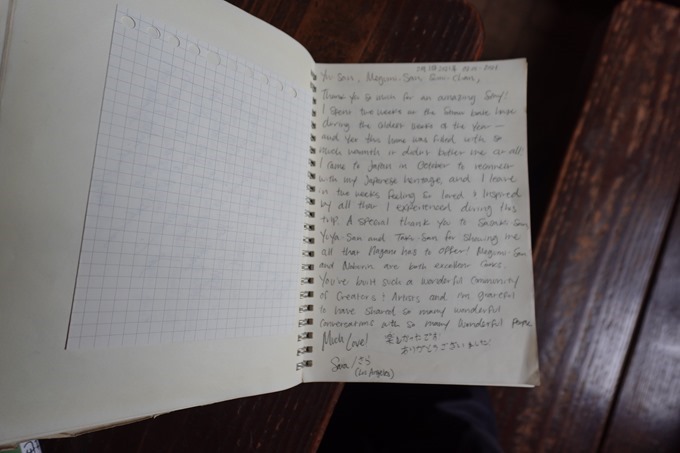 Yu-San, Megumi-San, Sen-Chan,
Thank you so much for an amazing stay!
I spent two weeks at the Sauna book house
during the coldest weeks of the year —
and yet this home was filled with so
much warmth it didn't bother me at all.
I came to Japan in October to reconnect
with my Japanese heritage, and I leave
in two weeks feeling so loved & inspired
by all that I experienced during this
trip. A special thank you to Sasaki-San,
YuYa-San and Taka-San for showing me
all that Nagano has to offer! Megumi-San
and are both excellent cooks.
You've built such a wonderful community
of creators & artists and I'm grateful
to have shared so many wonderful
conversations with so many wonderful people.
Much Love!
ありがとうございました!
Sara / さら
(Los Angeles)